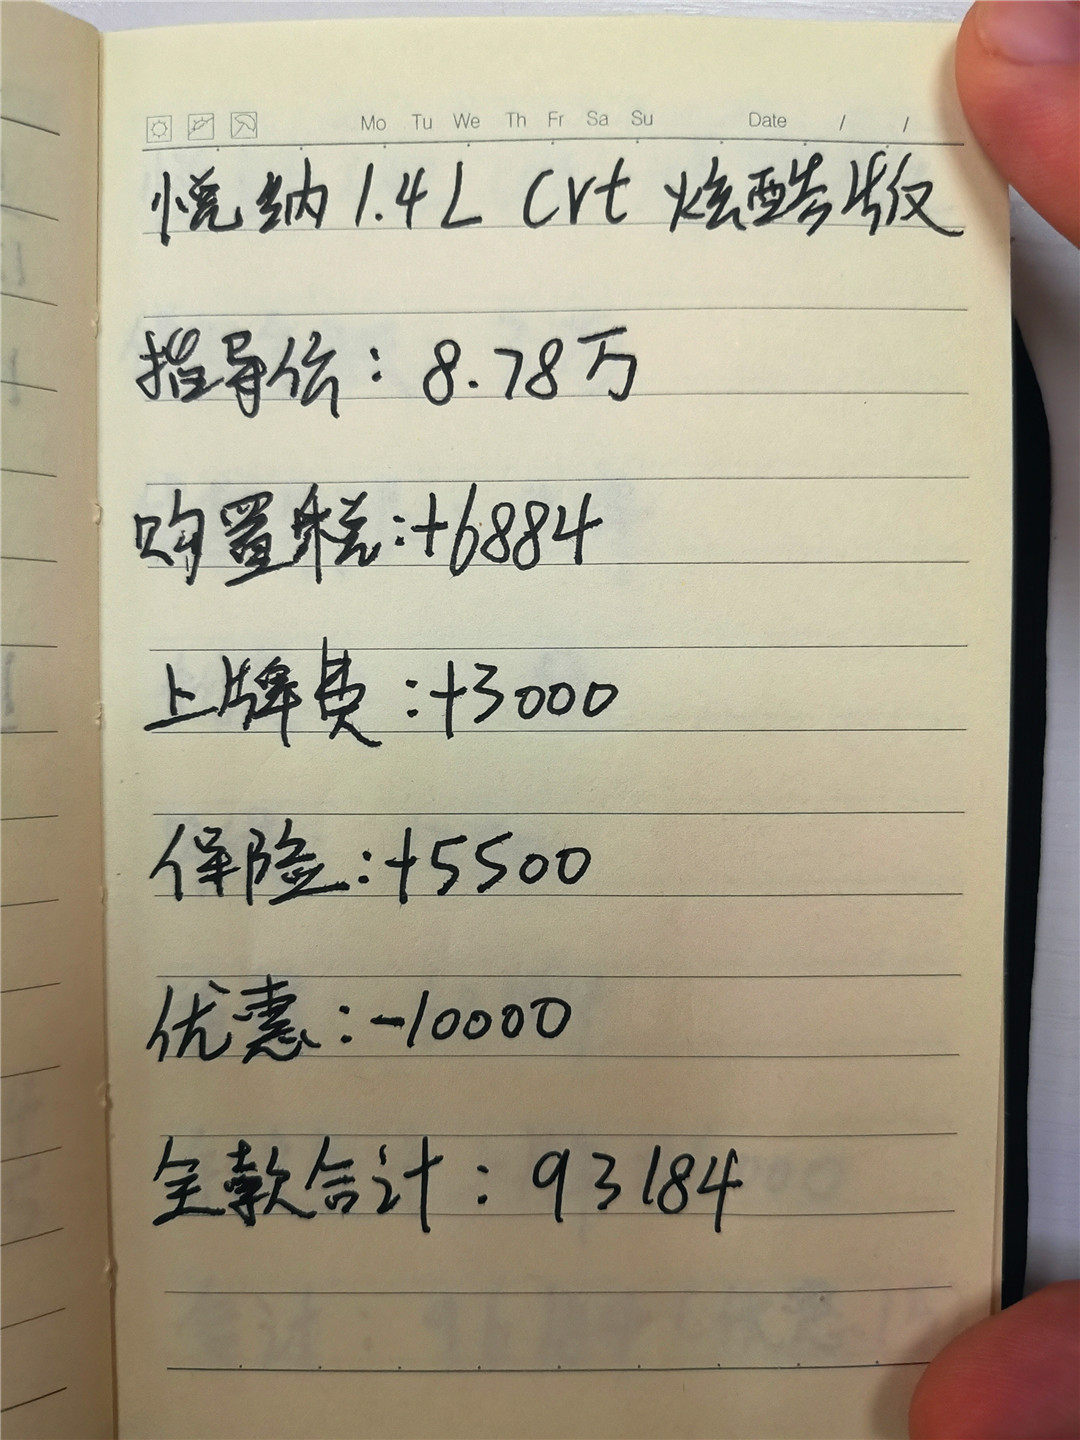 Mo Tu We Th Fr Sa Su Date / /
悦纳1.4L Crt 炫酷版
指导价：8.78万
购置税：+6884
上牌费：+3000
保险：+5500
优惠：-10000
全款合计：93184